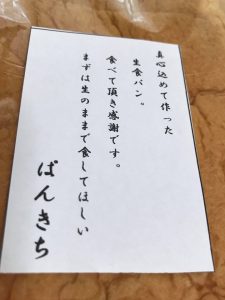 真心込めて作った
生食パン。
食べて頂き感謝です。
まずは生のままで食してほしい
ぱんきち